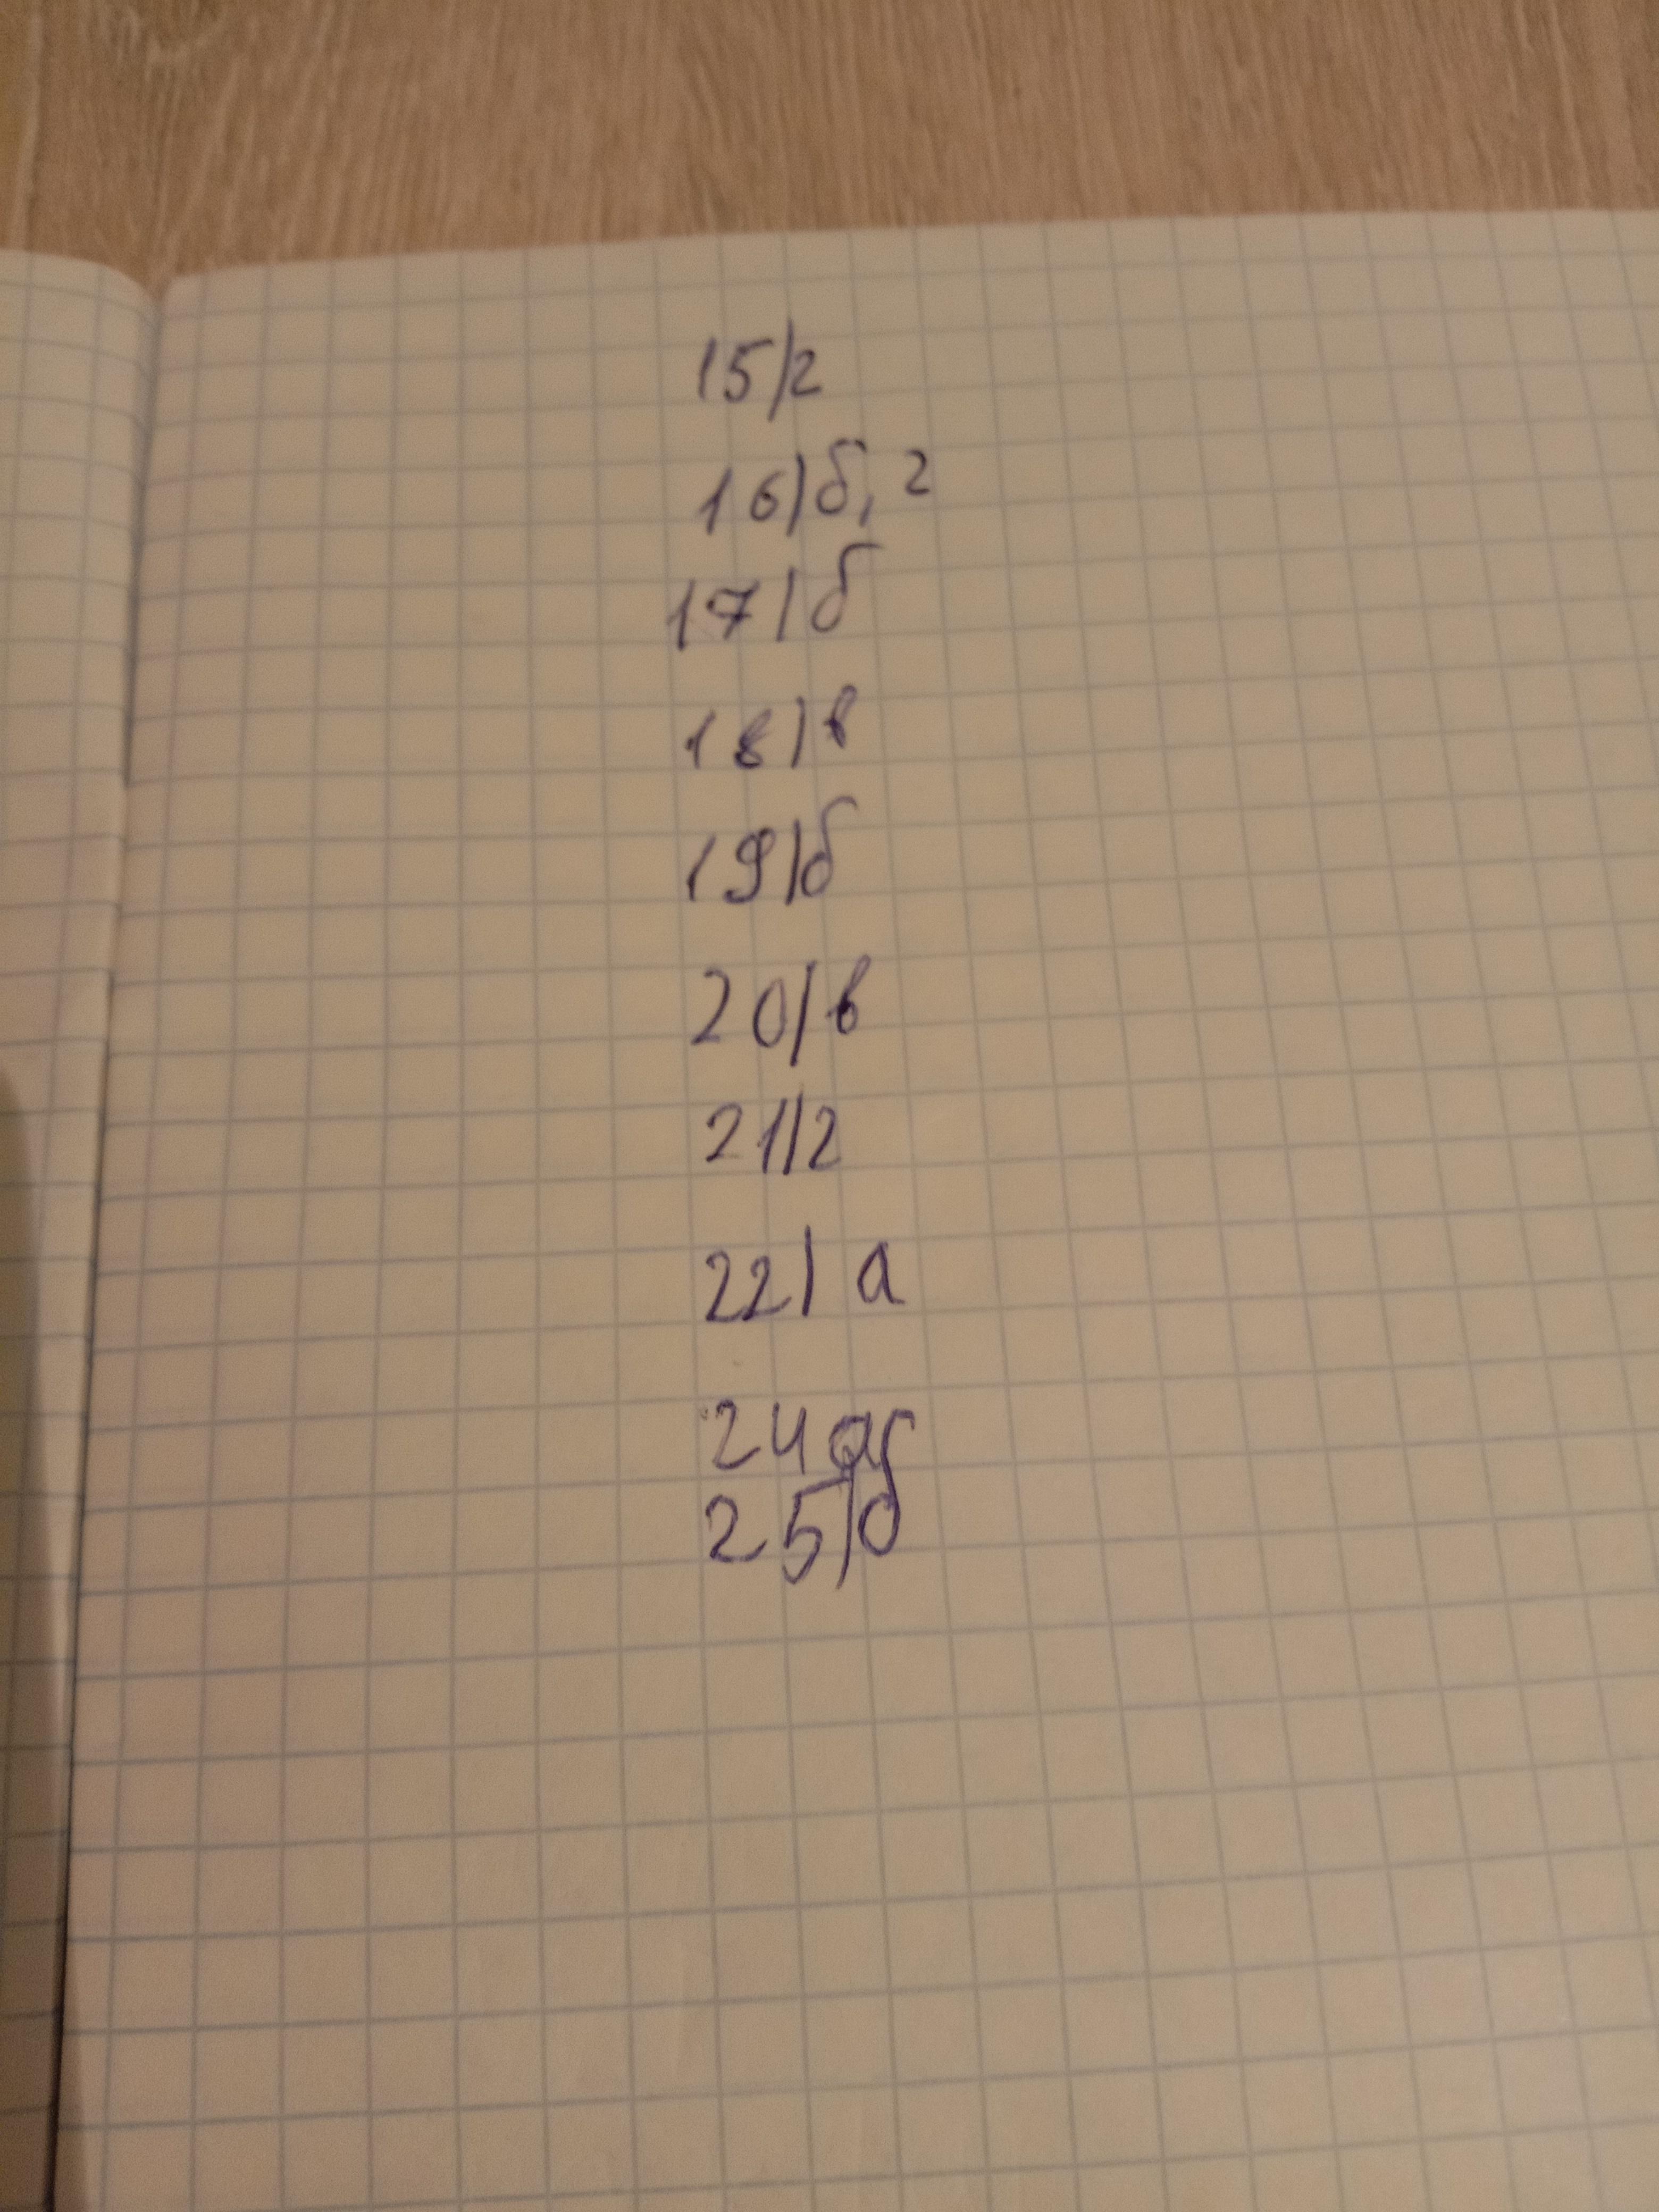 15/г
16/б, г
17/б
18/в
19/б
20/в
21/г
22/а
24а
25/б